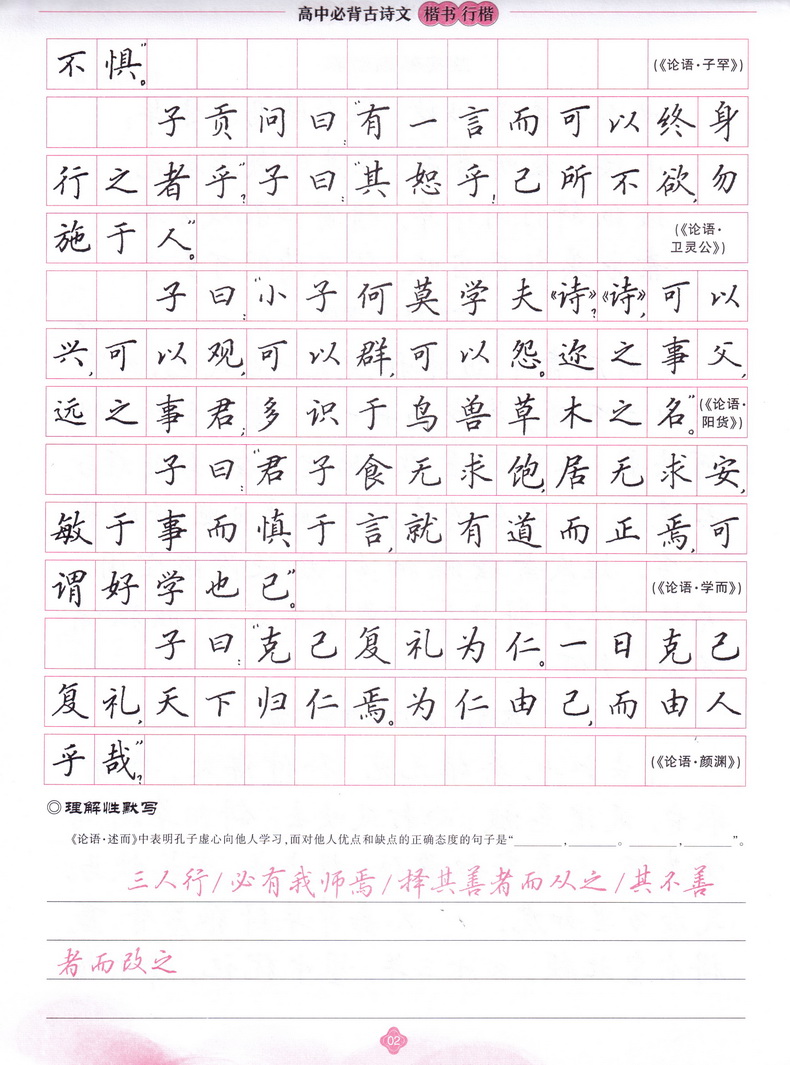 高中必背古诗文 楷书 行楷
不惧”。 (《论语·子罕》)
子贡问曰：“有一言而可以终身
行之者乎”？子曰：“其恕乎！己所不欲，勿
施于人”。 (《论语·
卫灵公》)
子曰：“小子何莫学夫《诗》？《诗》，可以
兴，可以观，可以群，可以怨。迩之事父，
远之事君；多识于鸟兽草木之名”。 (《论语·
阳货》)
子曰：“君子食无求饱，居无求安，
敏于事而慎于言，就有道而正焉，可
谓好学也已”。 (《论语·学而》)
子曰：“克己复礼为仁。一日克己
复礼，天下归仁焉。为仁由己，而由人
乎哉”？ (《论语·颜渊》)
◎理解性默写
《论语·述而》中表明孔子虚心向他人学习，面对他人优点和缺点的正确态度的句子是“______，______。______，______”。
三人行/必有我师焉/择其善者而从之/其不善
者而改之
02